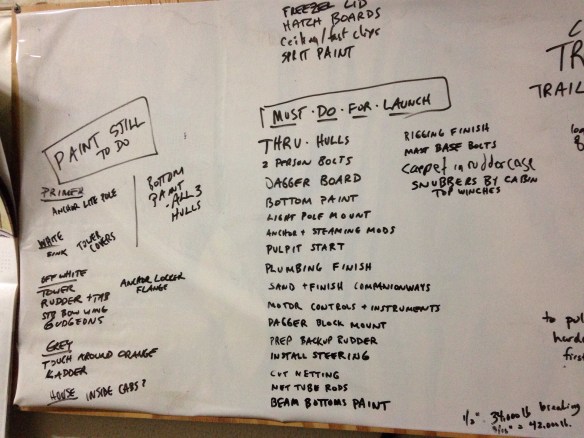 FREEZER LID
HATCH BOARDS
SPLIT PAINT
TR
TRAIL
PAINT STILL
TO DO
PRIMER
ANCHOR LITE POLE
WHITE
SINK TOWER
COVERS
OFF WHITE
TOWER
RUDDER + TAB
STB BOW WING
GUDGEONS
ANCHOR LOCKER
FLANGE
GREY
TOUCH AROUND ORANGE
LADDER
HOUSE INSIDE CABS?
BOTTOM
PAINT
- ALL 3
HULLS
MUST · DO · FOR · LAUNCH
THRU · HULLS
2 PERSON BOLTS
DAGGER BOARD
BOTTOM PAINT
LIGHT POLE MOUNT
ANCHOR + STEAMING MODS
PULPIT START
PLUMBING FINISH
SAND + FINISH COMPANIONWAYS
MOTOR CONTROLS + INSTRUMENTS
DAGGER BLOCK MOUNT
PREP BACKUP RUDDER
INSTALL STEERING
CUT NETTING
NET TUBE RODS
BEAM BOTTOMS PAINT
RIGGING FINISH
MAST BASE BOLTS
carpet in rudder case
SNUBBERS BY CABIN
TOP WINCHES
to pul
harde
first
1/2" = 34,000 lb breaking
9/16" = 42,000 lb.